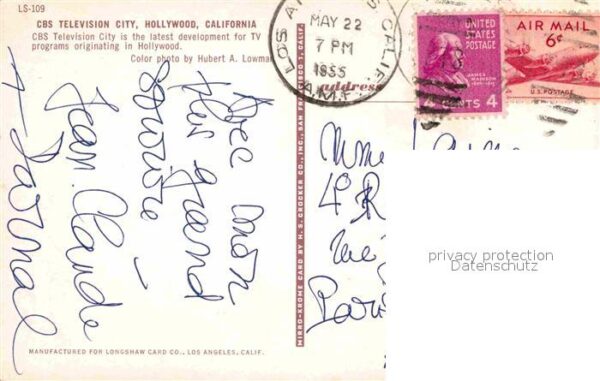 LS-109
CBS TELEVISION CITY, HOLLYWOOD, CALIFORNIA
CBS Television City is the latest development for TV
programs originating in Hollywood.
Color photo by Hubert A. Lowman
Avec mon
plus grand
sourire –
Jean. Claude
MANUFACTURED FOR LONGSHAW CARD CO., LOS ANGELES, CALIF.
MIRRO-KROME CARD BY H. S. CROCKER CO., INC., SAN FRANCISCO 1, CALIF.
LOS ANGELES CALIF.
MAY 22
7 PM
1955
A.M.F.
address
UNITED
STATES
POSTAGE
JAMES
MADISON
4 CENTS 4
AIR MAIL
6¢
U.S. POSTAGE
Mme
4 R
Paris
privacy protection
Datenschutz